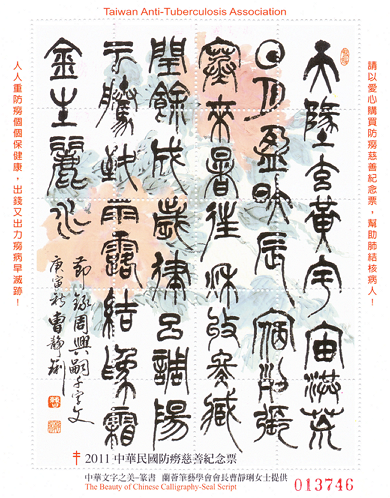 Taiwan Anti-Tuberculosis Association
請以愛心購買防癆慈善紀念票，幫助肺結核病人！
天地玄黃宇宙洪荒
日月盈昃辰宿列張
寒來暑往秋收冬藏
閏餘成歲律呂調陽
雲騰致雨露結為霜
金生麗水
節錄周興嗣千字文
庚寅秋曹靜琍
人人重防癆個個保健康，出錢又出力癆病早滅跡！
2011 中華民國防癆慈善紀念票
中華文字之美-篆書 蘭薈筆藝學會會長曹靜琍女士提供
The Beauty of Chinese Calligraphy-Seal Script
013746